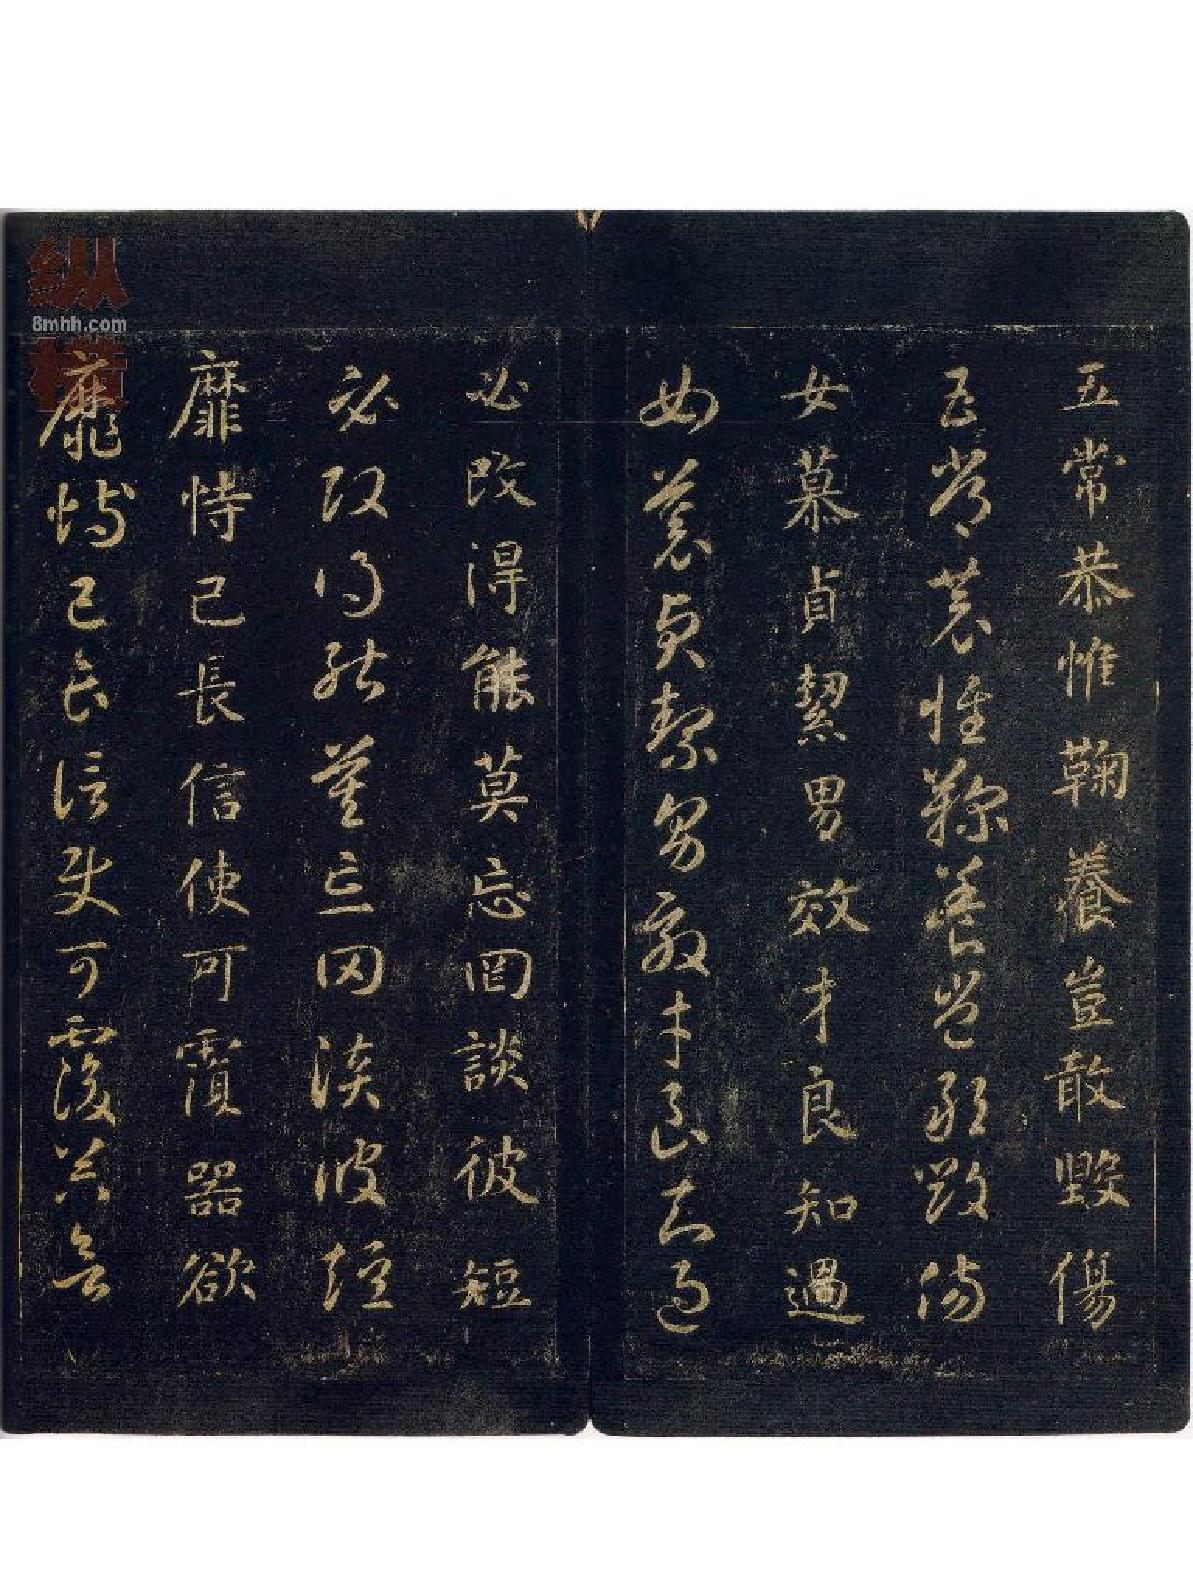 五常恭惟鞠養豈敢毀傷
五常恭惟鞠養豈敢毀傷
女慕貞絜男效才良知過
女慕貞絜男效才良知過
必改得能莫忘罔談彼短
必改得能莫忘罔談彼短
靡恃己長信使可覆器欲
靡恃己長信使可覆器欲
纵横
8mhh.com